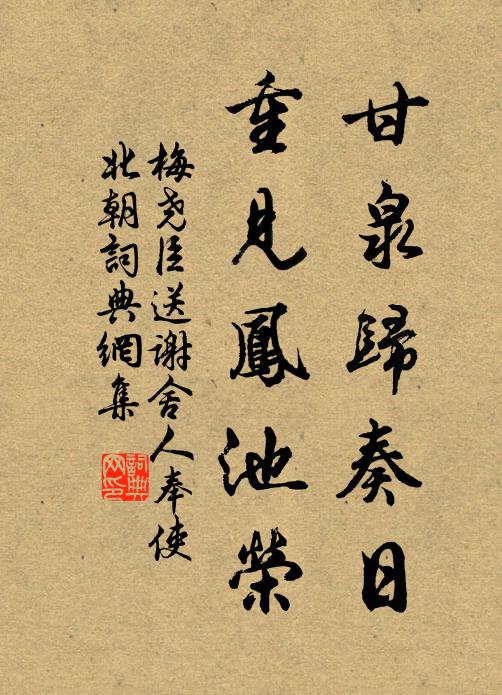 甘泉歸奏日
重見鳳池榮
梅堯臣送謝舍人奉使
北朝詞典網集
詞典网印